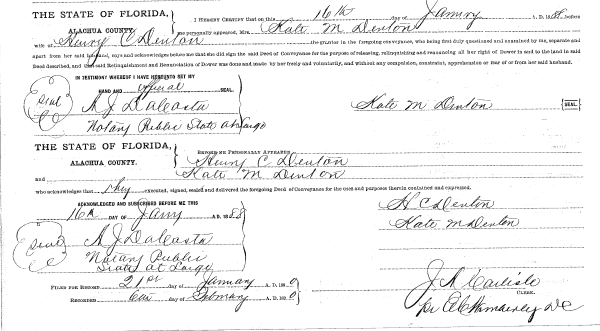 THE STATE OF FLORIDA,
ALACHUA COUNTY.
I HEREBY CERTIFY that on this 16th day of Janry A. D. 188 before
me personally appeared, Mrs. Kate M Denton
wife of Henry C Denton the grantor in the foregoing conveyance, who being first duly questioned and examined by me, separate and
apart from her said husband, says and acknowledges before me that she did sign the said Deed of Conveyance for the purpose of releasing, relinquishing and renouncing all her right of Dower in and to the land in said
Deed described, and that said Relinquishment and Renunciation of Dower was done and made by her freely and voluntarily, and without any compulsion, constraint, apprehension or fear of or from her said husband.
IN TESTIMONY WHEREOF I HAVE HEREUNTO SET MY
HAND AND official SEAL.
Seal
A J DaCosta
Notary Public State at Large
Kate M Denton {SEAL}
THE STATE OF FLORIDA,
ALACHUA COUNTY.
BEFORE ME PERSONALLY APPEARED
Henry C Denton
and Kate M. Denton
who acknowledges that they executed, signed, sealed and delivered the foregoing Deed of Conveyance for the uses and purposes therein contained and expressed.
ACKNOWLEDGED AND SUBSCRIBED BEFORE ME THIS
16th DAY OF Jany A.D. 1888
Seal
A J DaCosta
Notary Public
State at Large
H C Denton
Kate M Denton
FILED FOR RECORD 21st day of January A. D. 188
RECORDED 6th day of February A. D. 188
J A Carlisle
CLERK.
pr
DC